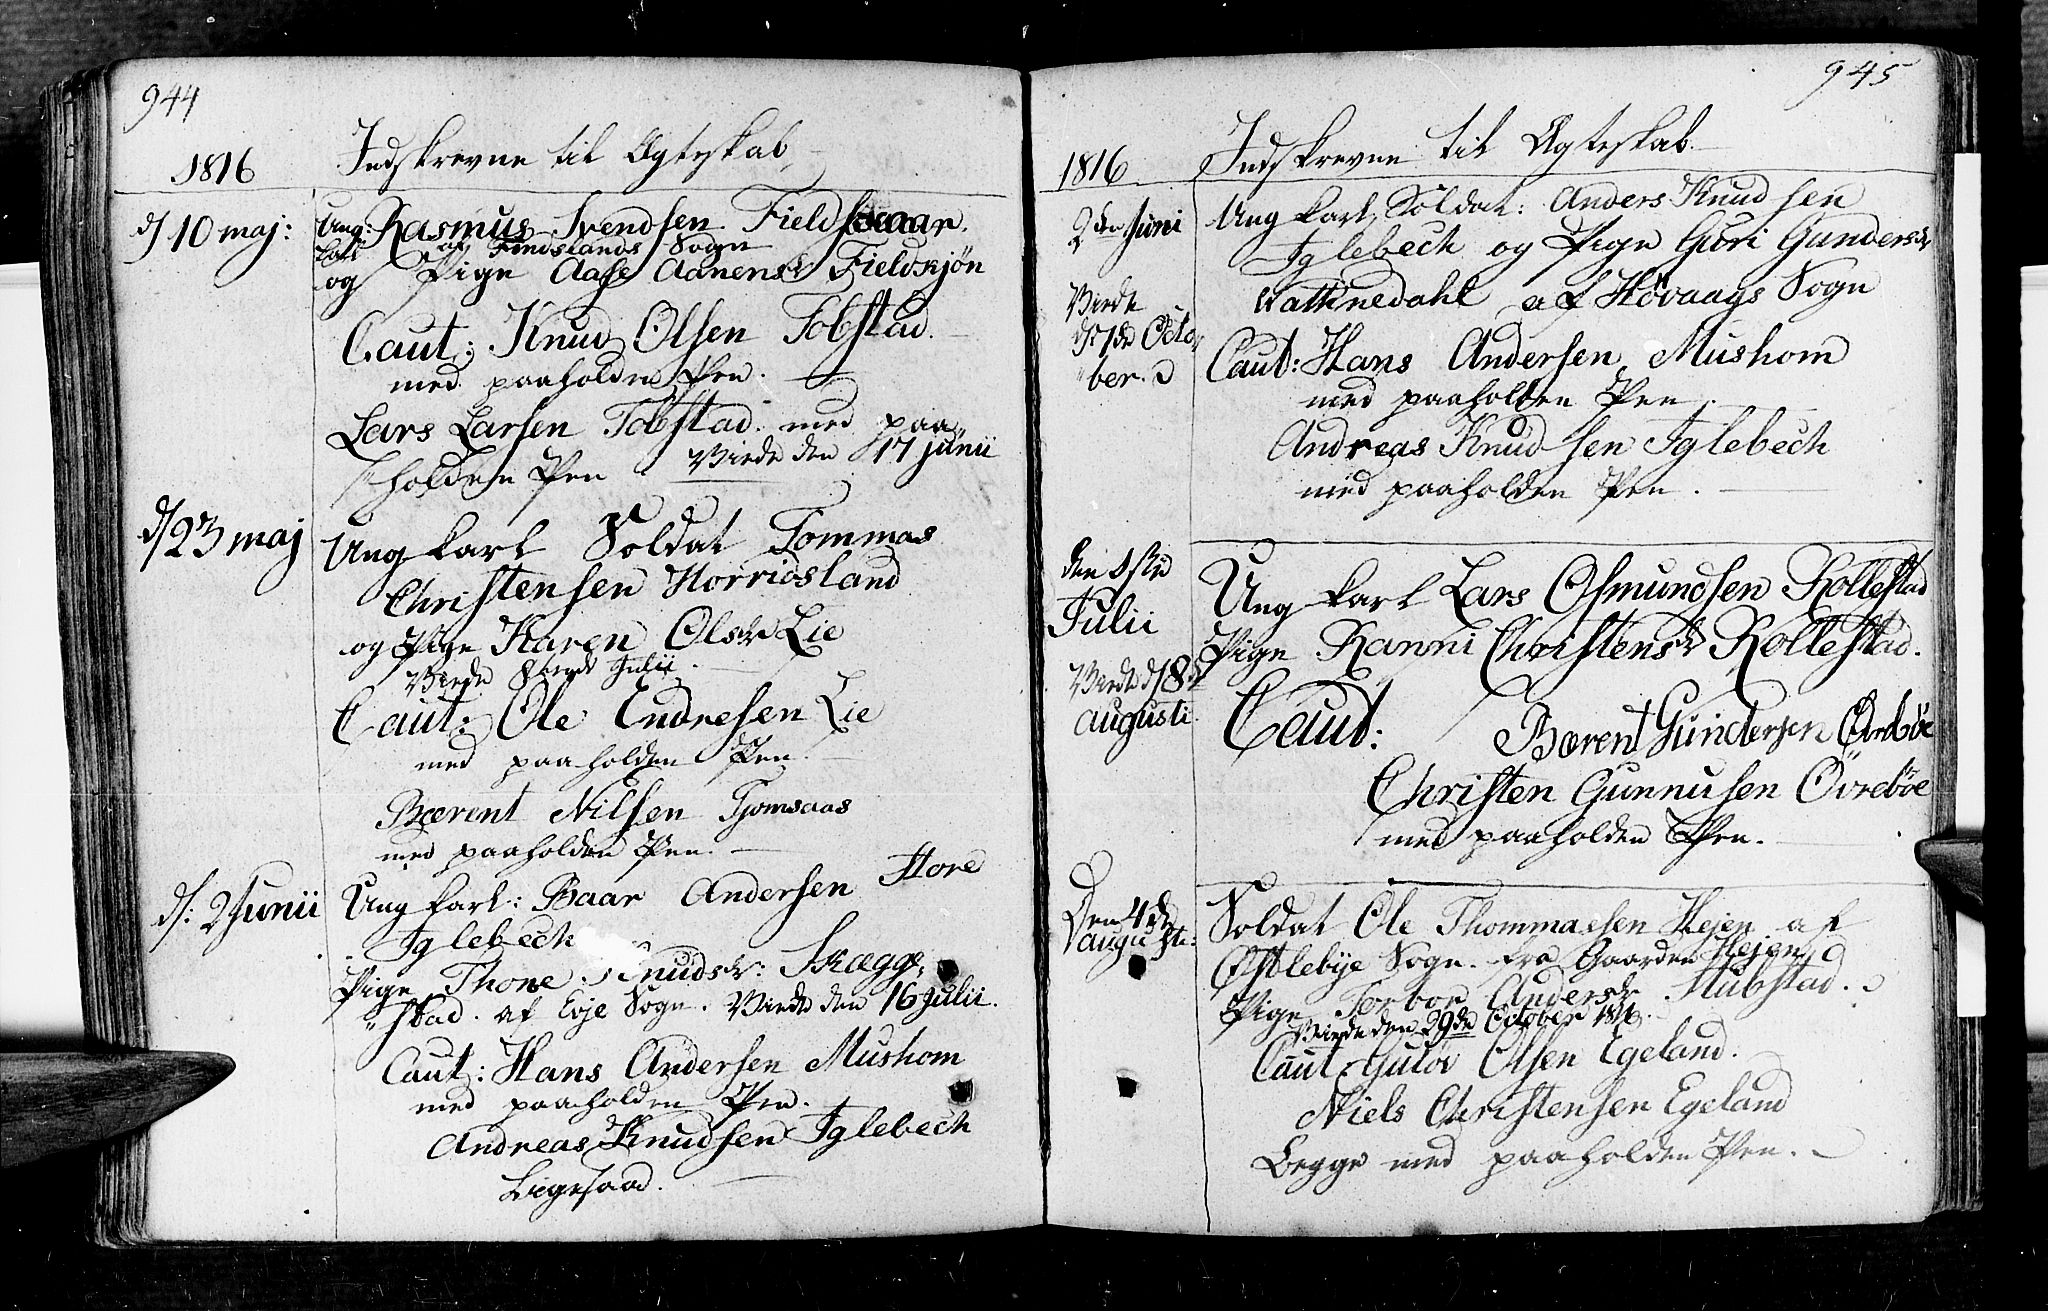 944
1816
Indskrevne til Ægteskab
d/ 10 maj:
Ung: Rasmus Svendsen Fieldskaar.
Karl af Findslands Sogn
og Pige Aase Aanensdr Fieldskjön
Caut: Knud Olsen Tobstad.
med paaholden Pen.
Lars Larsen Tobstad. med paa
holden Pen Viede den 17 junii
d/ 23 maj
Ung karl Soldat Tommas
Christensen Horridsland
og Pige Karen Olsdr Lie
Viede Julii.
Caut: Ole Endresen Lie
med paaholden Pen.
Bærent Nilsen Tjomsaas
med paaholden Pen.
d: 2 Junii
Ung karl: Baar Andersen Store
Iglebech
Pige Thone Knudsdr: Skægge,
"stad. af Evje Sogn. Viede den 16 julii.
Caut: Hans Andersen Mushom
med paaholden Pen.
Andreas Knudsen Iglebech
Ligesaad.
945
1816
Indskrevne til Ægteskab.
2den Juni
Ung karl, Soldat: Anders Knudsen
Iglebech og Pige Guri Gundersdr
Vattnedahl af Hövaags Sogn
Viede
d: 1de Octo-
"ber.
Caut: Hans Andersen Mushom
med paaholden Pen.
Andreas Knudsen Iglebech
med paaholden Pen.
den 1ste
Julii
Ung karl Lars Osmundsen Rollestad
Pige Ranni Christensdr Rollestad.
Viede d/ 8de
augusti.
Caut: Bærent Gundersen Övreböe
Christen Gunnusen Övrebøe
med paaholden Pen.
Den 4de
augusti:
Soldat Ole Thommassen Hejen af
Østlebye Sogn. fra Gaarden Hejen
Pige Torbor Andersdr Mubstad.
Viede den 29de October 1816.
Caut Gulov Olsen Egeland.
Niels Christensen Egeland
Begge med paaholden Pen.